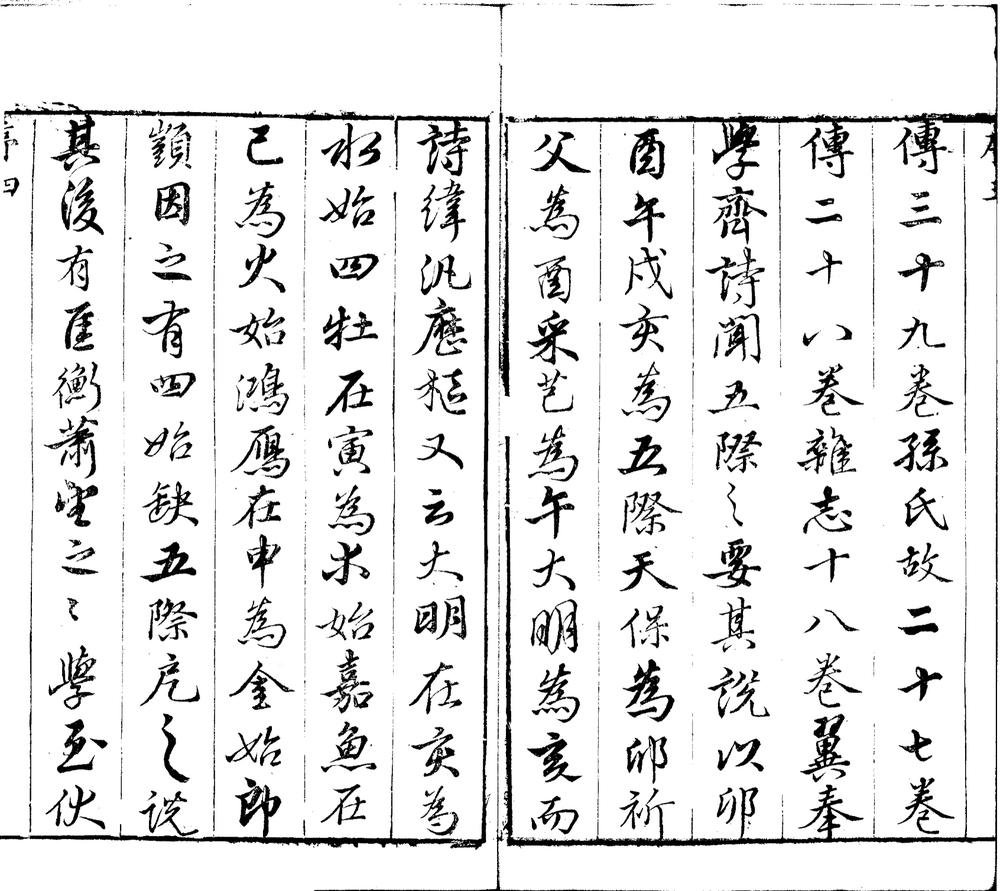 傳三十九卷孫氏故二十七卷
傳二十八卷雜志十八卷翼奉
學齊詩聞五際之要其說以卯
酉午戌亥為五際天保為卯祈
父為酉采芑為午大明為亥而
詩緯汎歷樞又云大明在亥為
水始四牡在寅為木始嘉魚在
已為火始鴻鴈在申為金始郎
顗因之有四始缺五際戹之說
其後有匡衡蕭望之之學至伏
序四